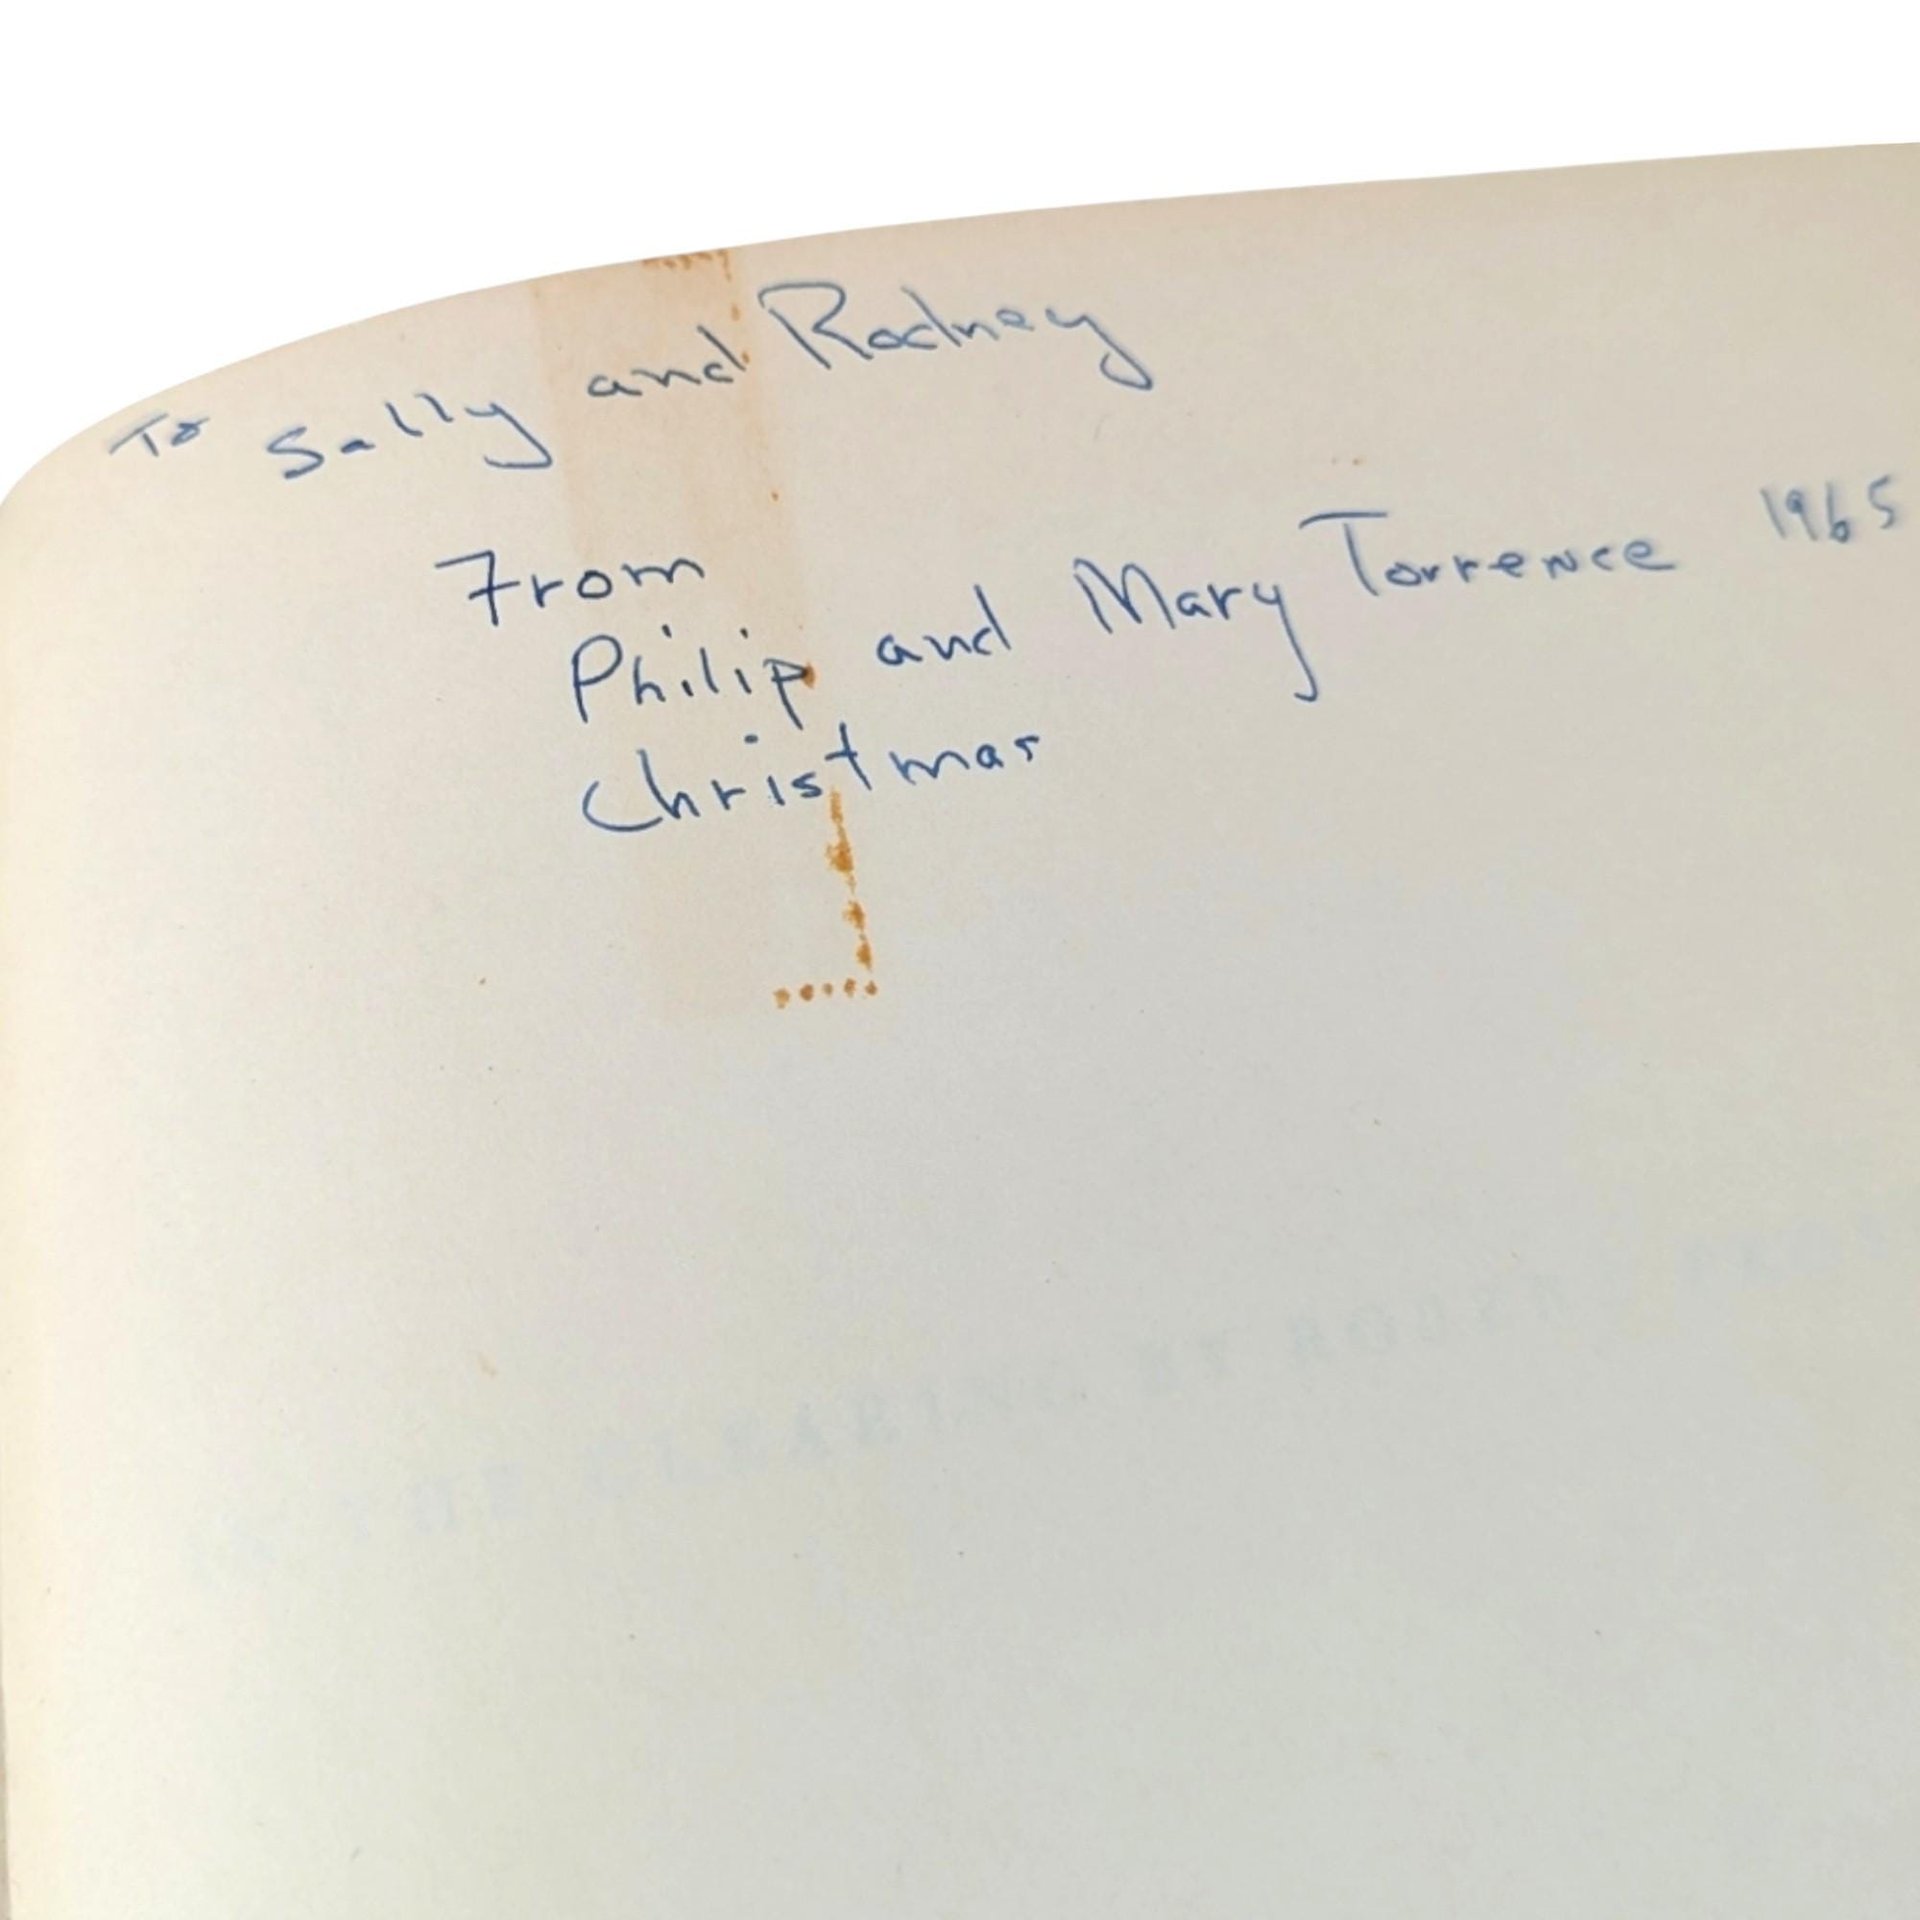 To Sally and Rodney
From
Philip and Mary Torrence 1965
Christmas